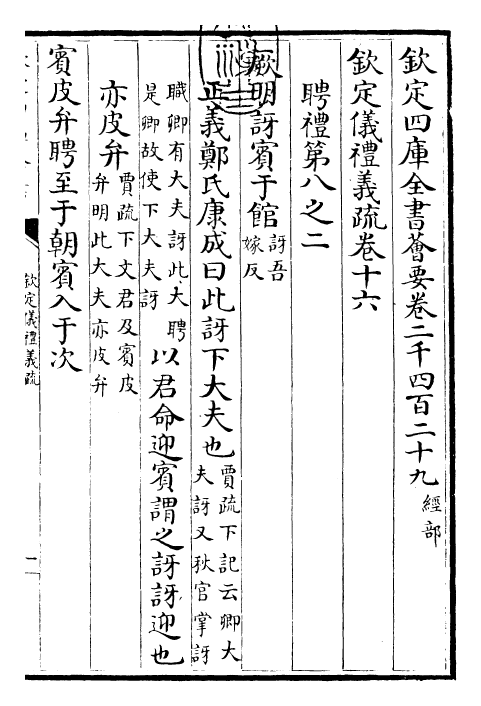 欽定四庫全書薈要卷二千四百二十九 經部
欽定儀禮義疏卷十六
聘禮第八之二
厥明訝賓于館 訝吾嫁反
正義鄭氏康成曰此訝下大夫也 賈疏下記云卿大夫訝又秋官掌訝
職卿有大夫訝此大聘是卿故使下大夫訝 以君命迎賓謂之訝訝迎也
亦皮弁 賈疏下文君及賓皮弁明此大夫亦皮弁
賓皮弁聘至于朝賓入于次
欽定儀禮義疏
一